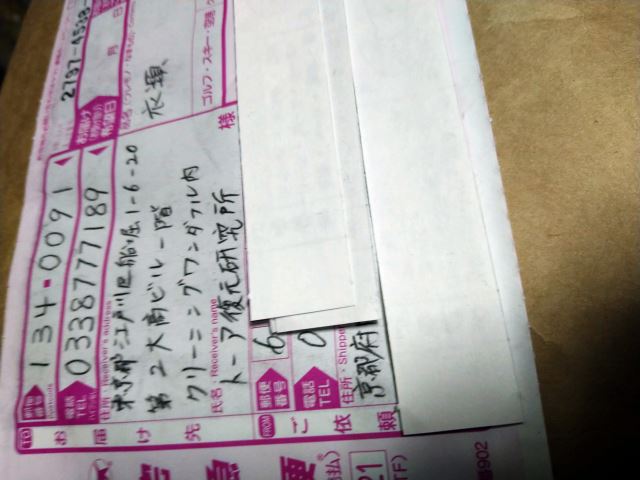 2737-4538-
TO
郵便番号
134-0091
お届け希望日
月
日
電話 TEL
0338777189
品名
衣類
ゴルフ・スキー・空港
お届け先
住所・Receiver's address
東京都江戸川区船堀1-6-20
第2大高ビル一階
クリーニングワンダフル内
氏名・Receiver's name
トーア復元研究所
様
FROM
郵便番号
6
ご依頼
電話 TEL
0
住所・Shippe
京都府
便